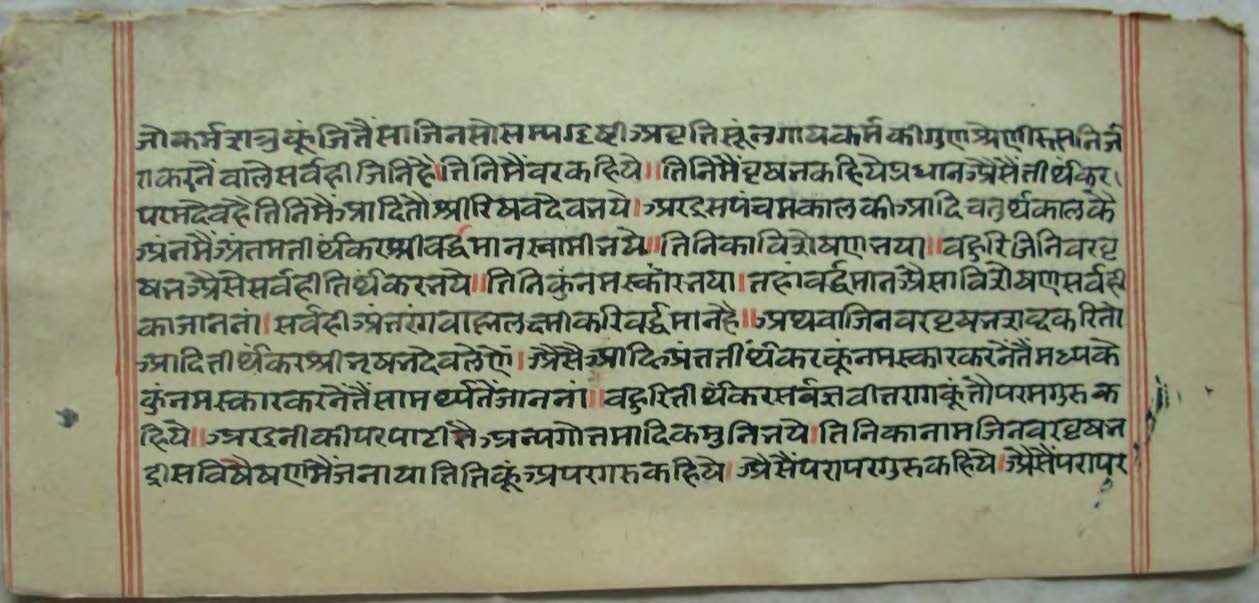 जो कर्मशत्रु कूं जितैं सो जिन सो सम्यग्दृष्टी अवृत्ति सूं लगाय कर्म की गुणश्रेणीरूप निर्ज
रा करनैं वाले सर्वही जिनि है॥ तिनि मैं वर कहिये॥ तिनि मैं वृषभ कहिये प्रधान अैसैं तीर्थंकर
परम देव है तिनि मैं आदि तौ श्री रिषवदेव भये। अर इस पंचम काल की आदि चतुर्थ काल कै
अंत मैं अंतम तीर्थंकर श्री वर्द्धमान स्वामी भये॥ तिनि का विशेषण भया॥ वहुरि जिनिवर वृ
षभ अैसे सर्व ही तिर्थंकर भये॥ तिनि कुं नमस्कार भया। तहां वर्द्धमान अैसा विशेषण सर्व ही
का जाननां। सर्व ही अंतरंग वाह्य लक्ष्मी करि वर्द्धमान है॥ अथवा जिनवर वृषभ शब्द करि तो
आदि तीर्थंकर श्री वृषभदेव लेणें। अैसै आदि अंत तीर्थंकर कूं नमस्कार करनें तैं मध्य के
कुं नमस्कार करनें तैं सामर्थ्य तें जाननां॥ वहुरि तीर्थंकर सर्वज्ञ वीतराग कूं तौ परम गुरु क
हिये॥ अर इनी की परपाटी मै अन्य गोतमादिक मुनि भये। तिनि का नाम जिनवर वृषभ
इस विषैषण मैं जनाया तिनि कूं अपर गरु कहिये। अैसैं परापर गुरु कहिये। अैसैं परापर